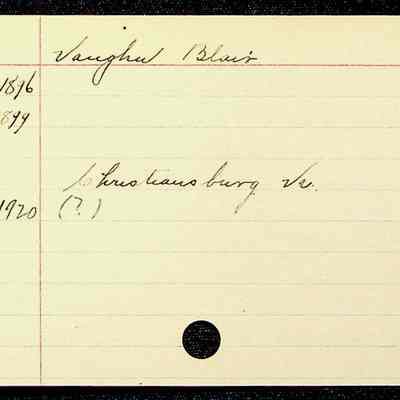 Vaughn Blair
1896
1899
Christiansburg Va.
1920 (?)